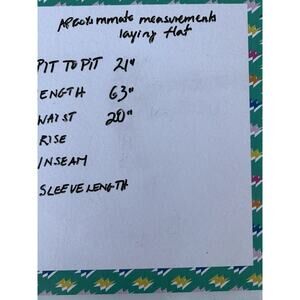 Approximmate measurements
laying flat
PIT TO PIT 21"
ENGTH 63"
WAIST 20"
RISE
INSEAM
SLEEVE LENGTH